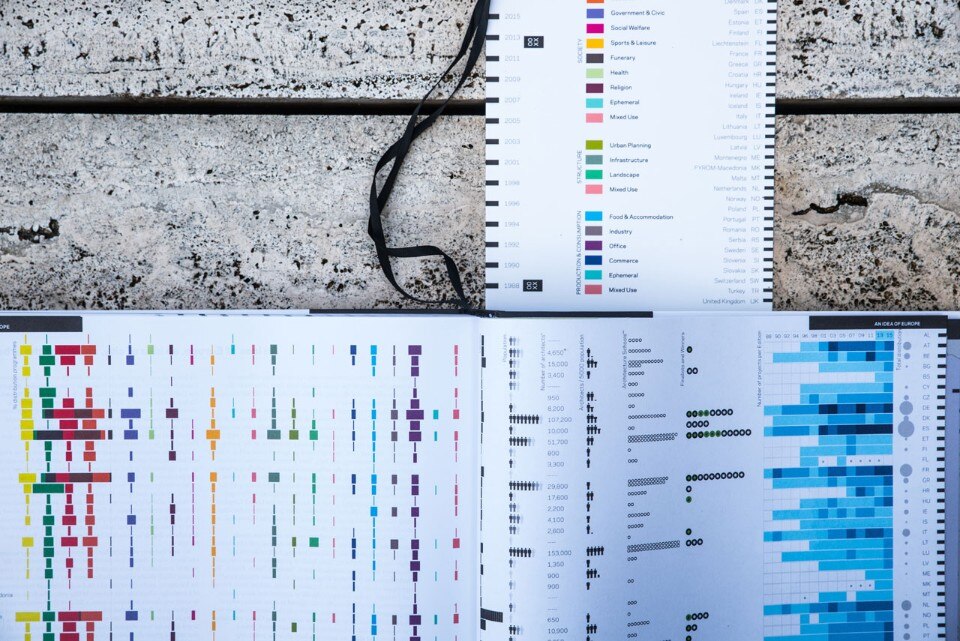 Denmark DK
2015
Government & Civic
Spain ES
Social Welfare
Estonia ET
Sports & Leisure
Finland FI
2013
Liechtenstein FL
SOCIETY
Funerary
France FR
2011
Greece GR
Health
Croatia HR
2009
Religion
Hungary HU
Ireland IE
2007
Ephemeral
Iceland IS
Mixed Use
Italy IT
2005
Lithuania LT
Luxembourg LU
2003
Urban Planning
Latvia LV
STRUCTURE
Infrastructure
Montenegro ME
2001
FYROM-Macedonia MK
Landscape
Malta MT
1998
Mixed Use
Netherlands NL
Norway NO
1996
Poland PL
Food & Accommodation
Portugal PT
1994
Industry
Romania RO
PRODUCTION & CONSUMPTION
Office
Serbia RS
1992
Sweden SE
Commerce
Slovenia SI
1990
Ephemeral
Slovakia SK
Switzerland SW
1988
Mixed Use
Turkey TR
United Kingdom UK
OPE
AN IDEA OF EUROPE
% distribution programmes
Number of architects
Architects / 5000 population
Architecture Schools
Finalists and Winners
Number of projects per biennium
88 90 92 94 96 98 01 03 05 07 09 11 13 15
Total distribution
AL
AT
BE
BG
BS
CY
CZ
DE
DK
ES
ET
FI
FL
FR
GR
HR
HU
IE
IS
IT
LT
LU
LV
ME
MK
MT
NL
NO
PL
4,650
15,000
3,400
950
6,200
107,200
10,000
51,700
800
3,300
29,800
17,600
2,200
4,100
2,600
153,000
1,350
900
900
650
10,900
donia